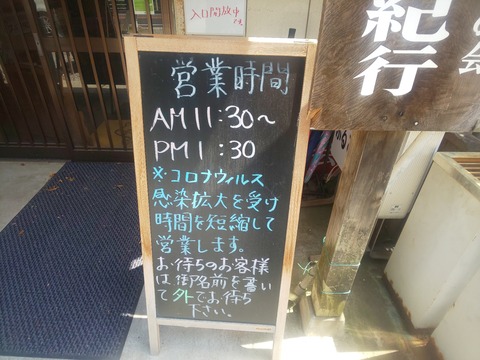 入口開放中
です
営業時間
AM11:30～
PM1:30
※コロナウィルス
感染拡大を受け
時間を短縮して
営業します。
お待ちのお客様
は御名前を書い
て外でお待ち
下さい。
紀行